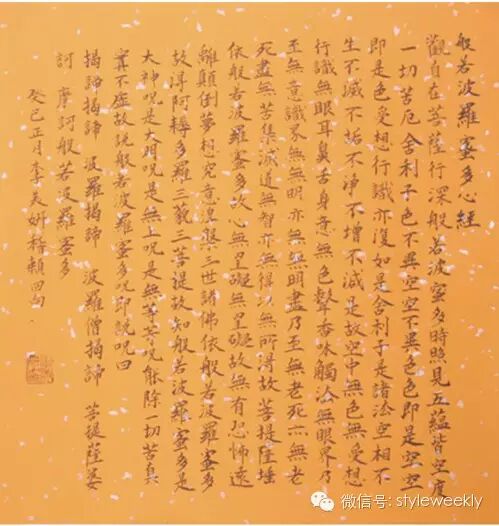 般若波羅蜜多心經
觀自在菩薩行深般若波蜜多時照見五蘊皆空度
一切苦厄舍利子色不異空空不異色色即是空空
即是色受想行識亦復如是舍利子是諸法空相不
生不滅不垢不净不增不減是故空中無色無受想
行識無眼耳鼻舌身意無色聲香味觸法無眼界乃
至無意識界無無明亦無無明盡乃至無老死亦無老
死盡無苦集滅道無智亦無得以無所得故菩提薩埵
依般若波羅蜜多故心無罣礙無罣礙故無有恐怖遠
離顛倒夢想究竟涅槃三世諸佛依般若波羅蜜多
故得阿耨多羅三藐三菩提故知般若波羅蜜多是
大神呪是大明呪是無上呪是無等等呪能除一切苦真
實不虛故說般若波羅蜜多呪即說呪曰
揭諦揭諦 波羅揭諦 波羅僧揭諦 菩提薩婆
訶 摩訶般若波羅蜜多
癸巳正月李美妍
微信号: styleweekly